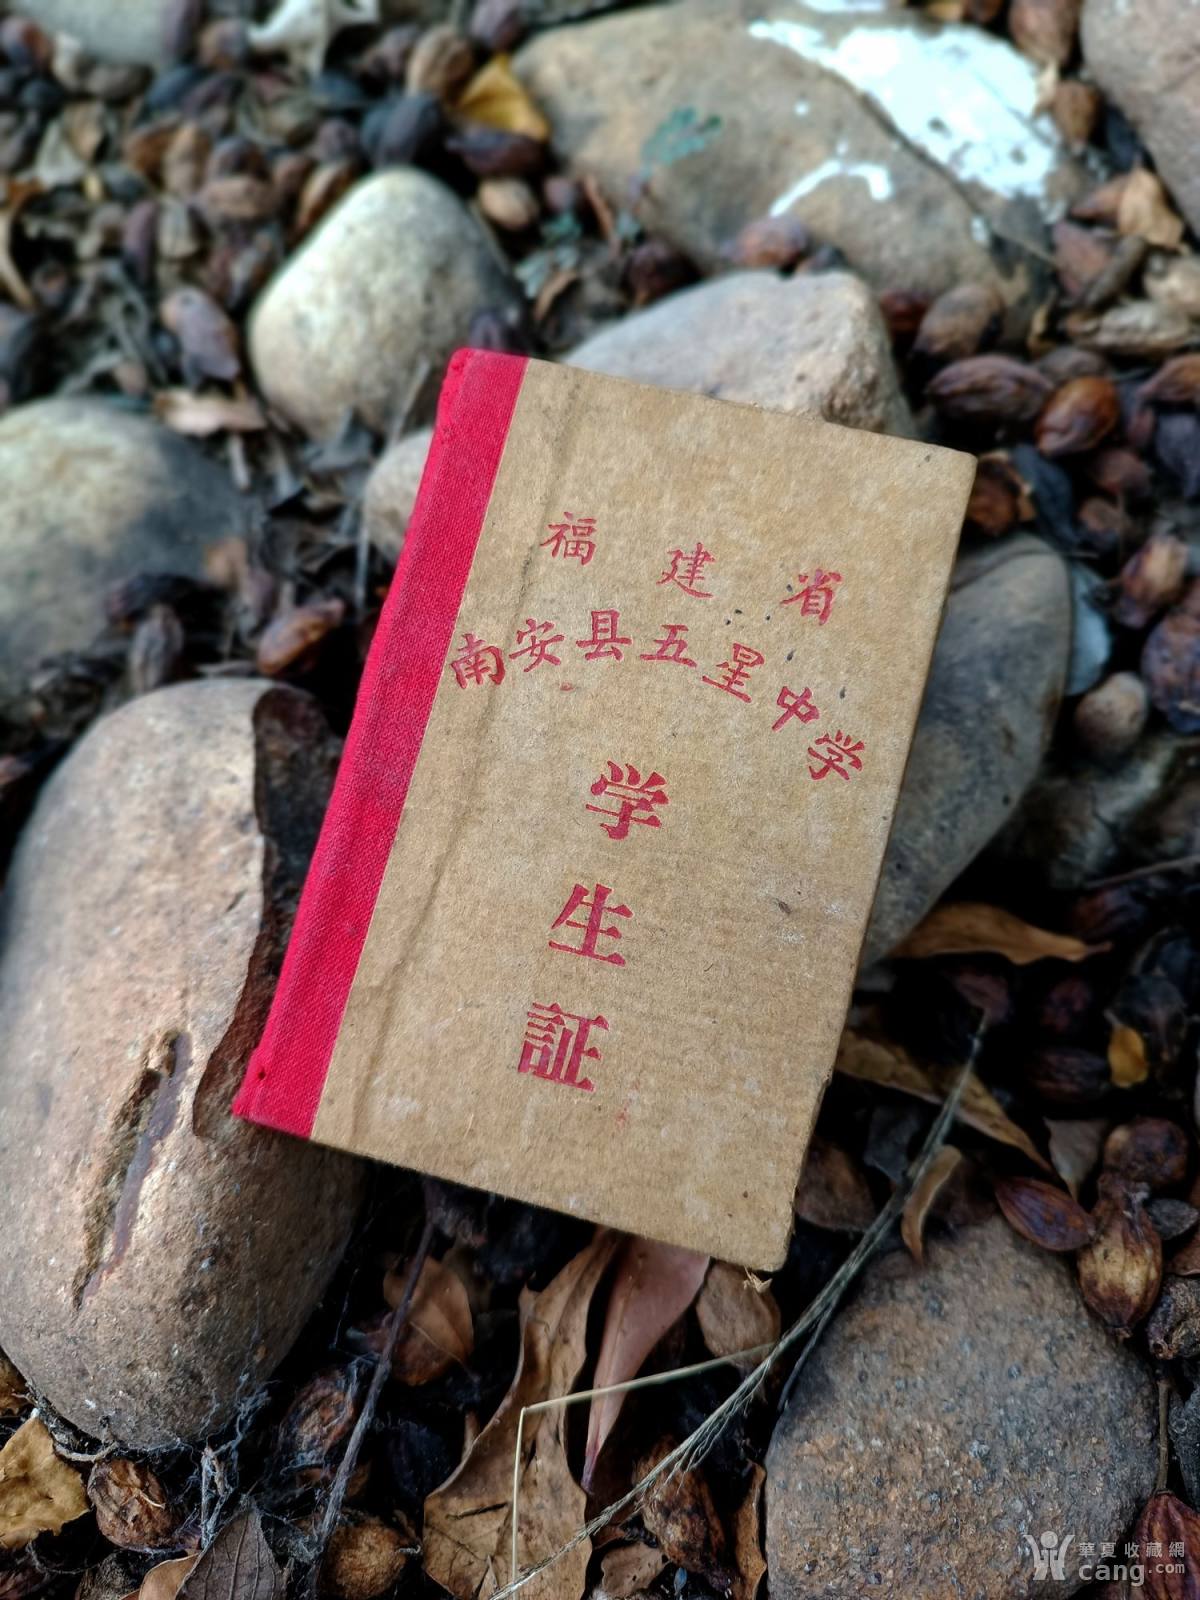 福建省
南安县五星中学
学
生
証
華夏收藏網
cang.com